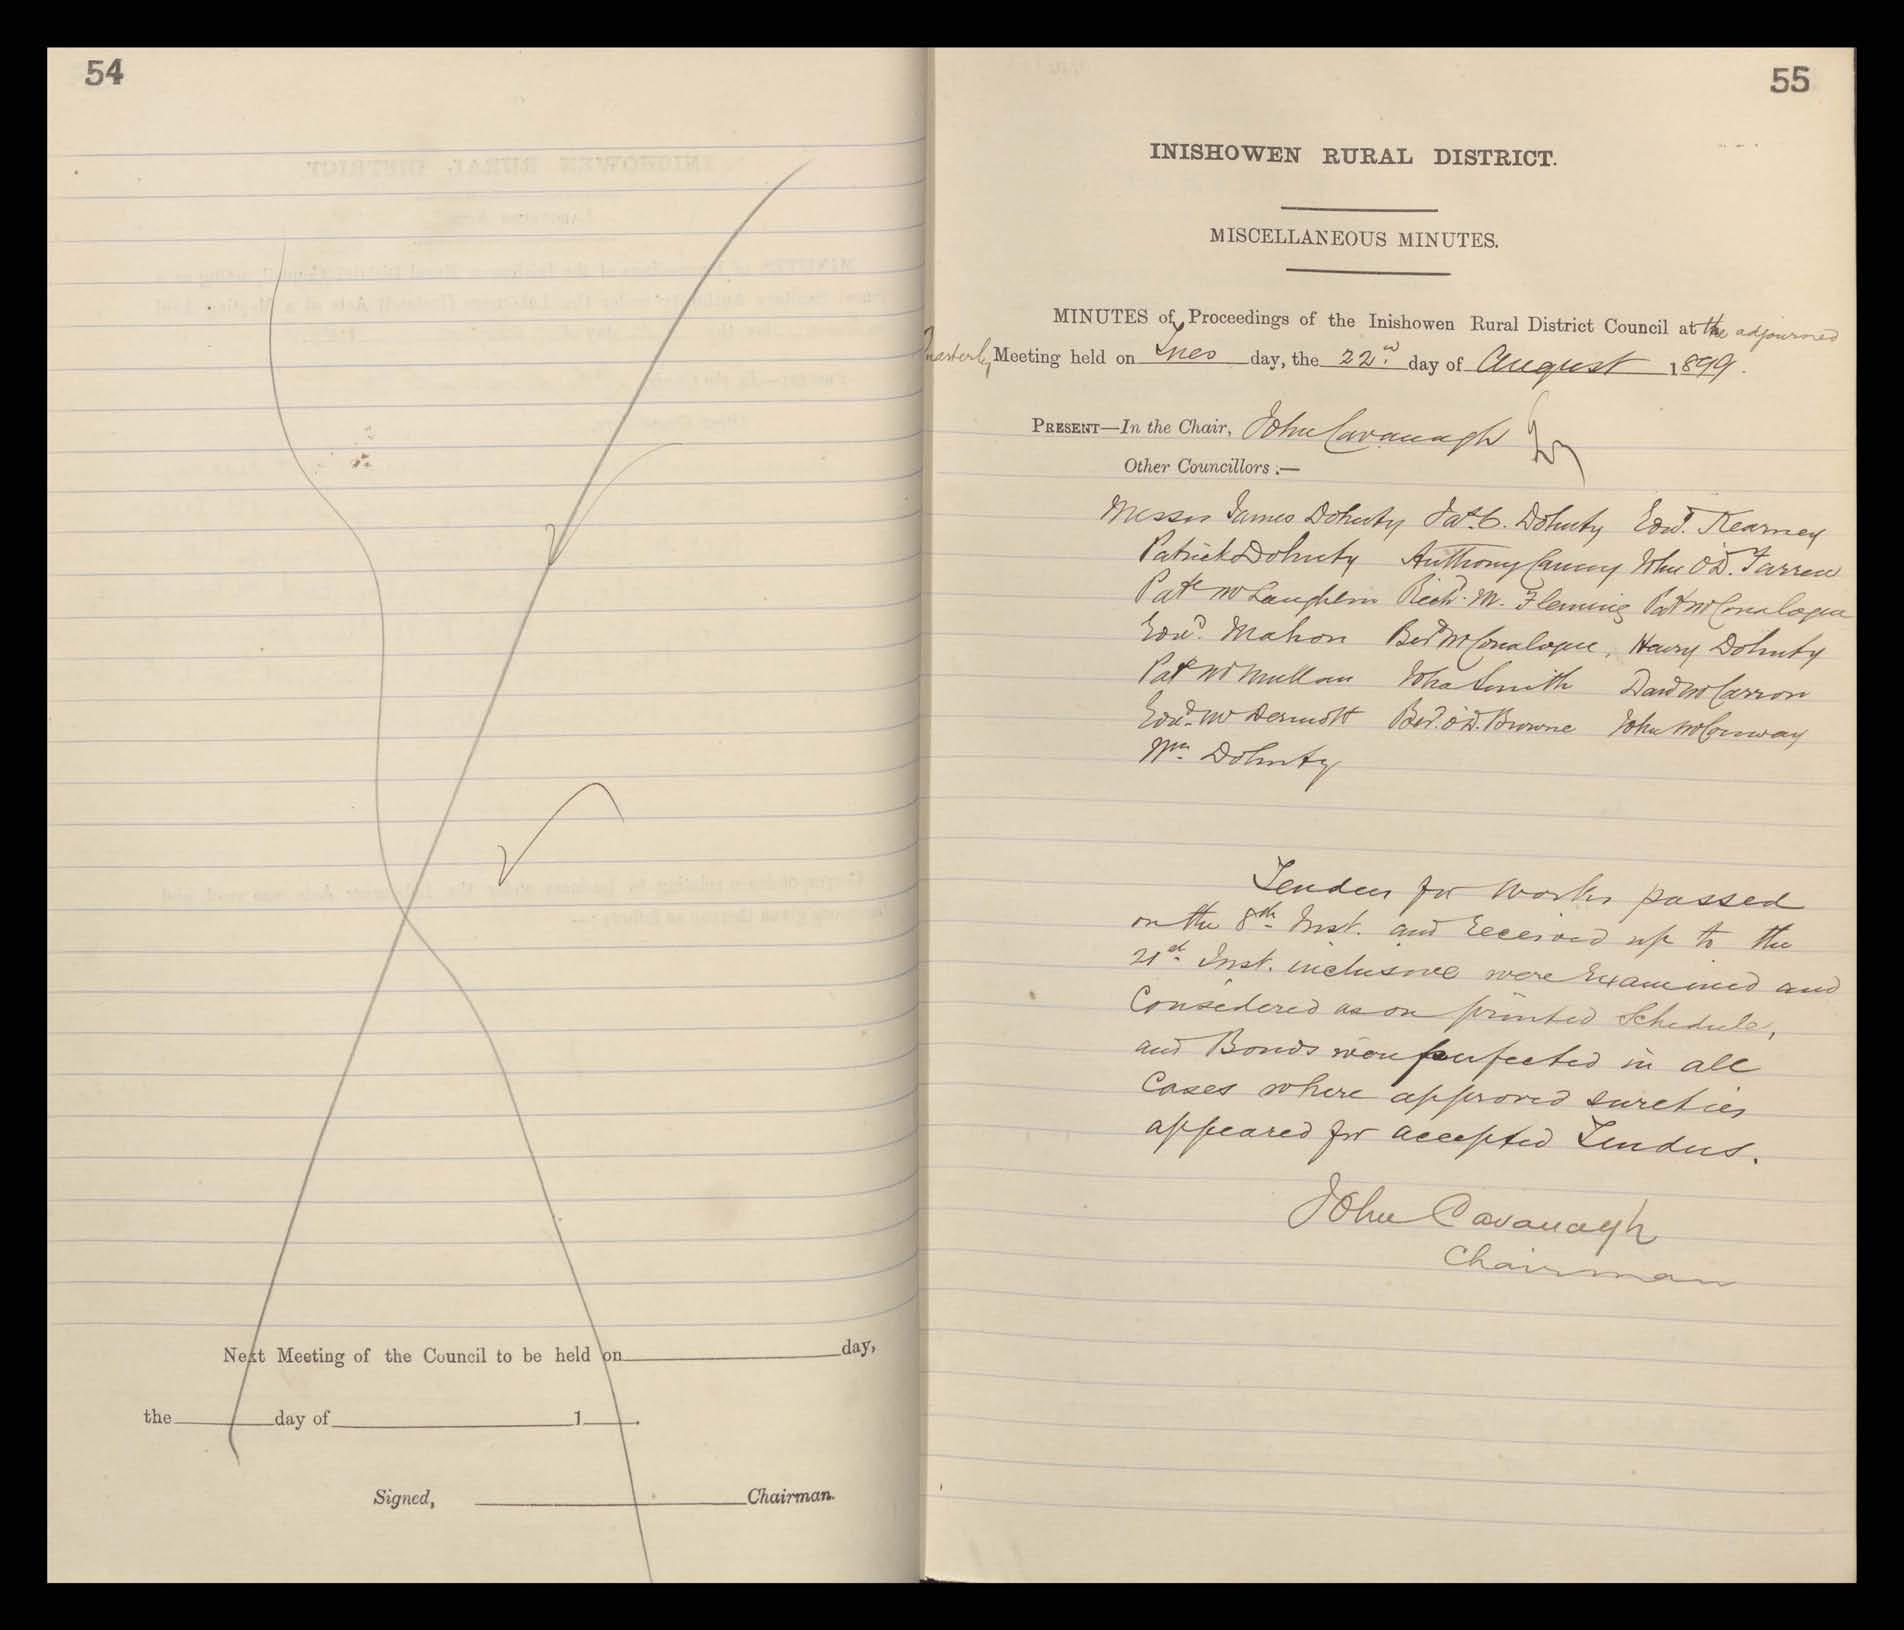 54
Next Meeting of the Council to be held on day,
the day of 1 .
Signed, Chairman.
55
INISHOWEN RURAL DISTRICT.
MISCELLANEOUS MINUTES.
MINUTES of Proceedings of the Inishowen Rural District Council at the adjourned
Quarterly Meeting held on Tues day, the 22nd day of August 1899.
PRESENT—In the Chair, John Cavanagh
Other Councillors :—
Messrs James Doherty Jas. C. Doherty Edwd. Kearney
Patrick Doherty Anthony Canny John O'D. Farren
Patk McLaughlin Richd. M. Fleming Pat McConalogue
Edwd. Mahon Bed McConalogue, Henry Doherty
Patk McMullan John Smith Danl McCarron
Edwd. McDermott Bed. O'D. Browne John McConway
Wm. Doherty
Tenders for Works passed
on the 8th Inst. and received up to the
21st Inst. inclusive were Examined and
Considered as on printed Schedule,
and Bonds were perfected in all
Cases where approved sureties
appeared for accepted Tenders.
John Cavanagh
Chairman